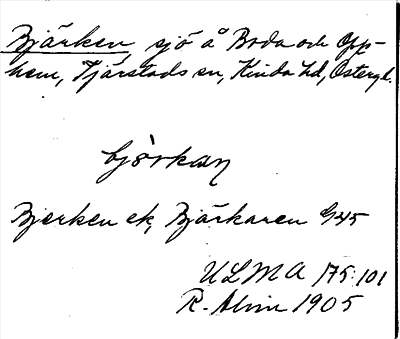 Bjärken, sjö å Boda och Opp-
hem, Tjärstads sn, Kinda hd, Östergl.
bjö̀rkan
Bjerken ek, Björkaren G45
ULMA 175:101
R. Alvin 1905